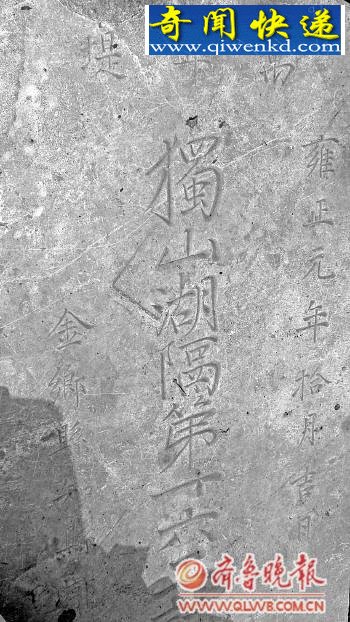 奇闻快递
www.qiwenkd.com
堤
雍正元年拾月吉日
獨山湖隔第十六
金鄉縣
齐鲁晚报
WWW.QLWB.COM.CN